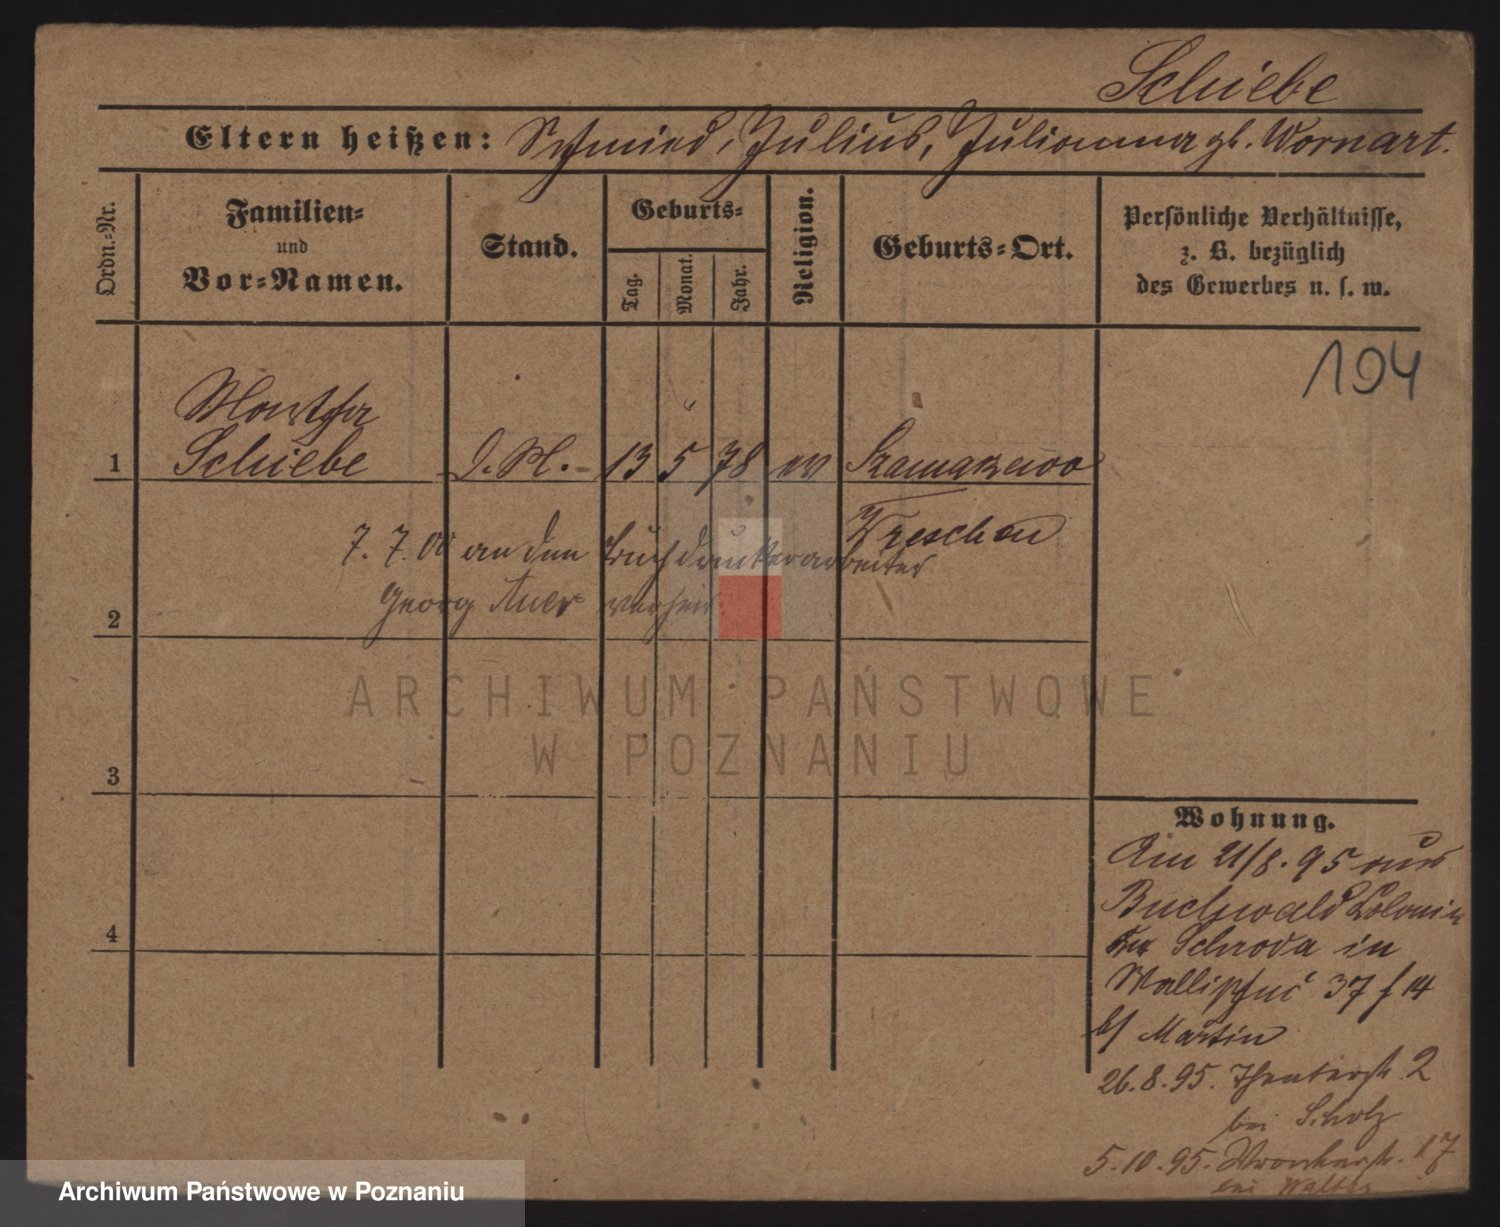 Schiebe
Eltern heißen: Schmied, Julius, Julianna gb. Wornart.
Ordn.-Nr.
Familien-
und
Vor-Namen.
Stand.
Geburts-
Tag.
Monat.
Jahr.
Religion.
Geburts-Ort.
Persönliche Verhältnisse,
z. B. bezüglich
des Gewerbes u. s. w.
194
Martha
1 Schiebe D. M. 13 5 78 ev
Wreschen
7. 7. 00 an den Buchdruckerarbeiter
2 Georg Auer verheir
3
4
ARCHIWUM PAŃSTWOWE
W POZNANIU
Wohnung.
Am 21/8. 95 aus
Buchwald Colonie
Schroda in
Wallischei 37
b/ Martin
26. 8. 95. Theaterstr. 2
bei Scholz
5. 10. 95. Wronkerstr. 17
bei Walter
Archiwum Państwowe w Poznaniu